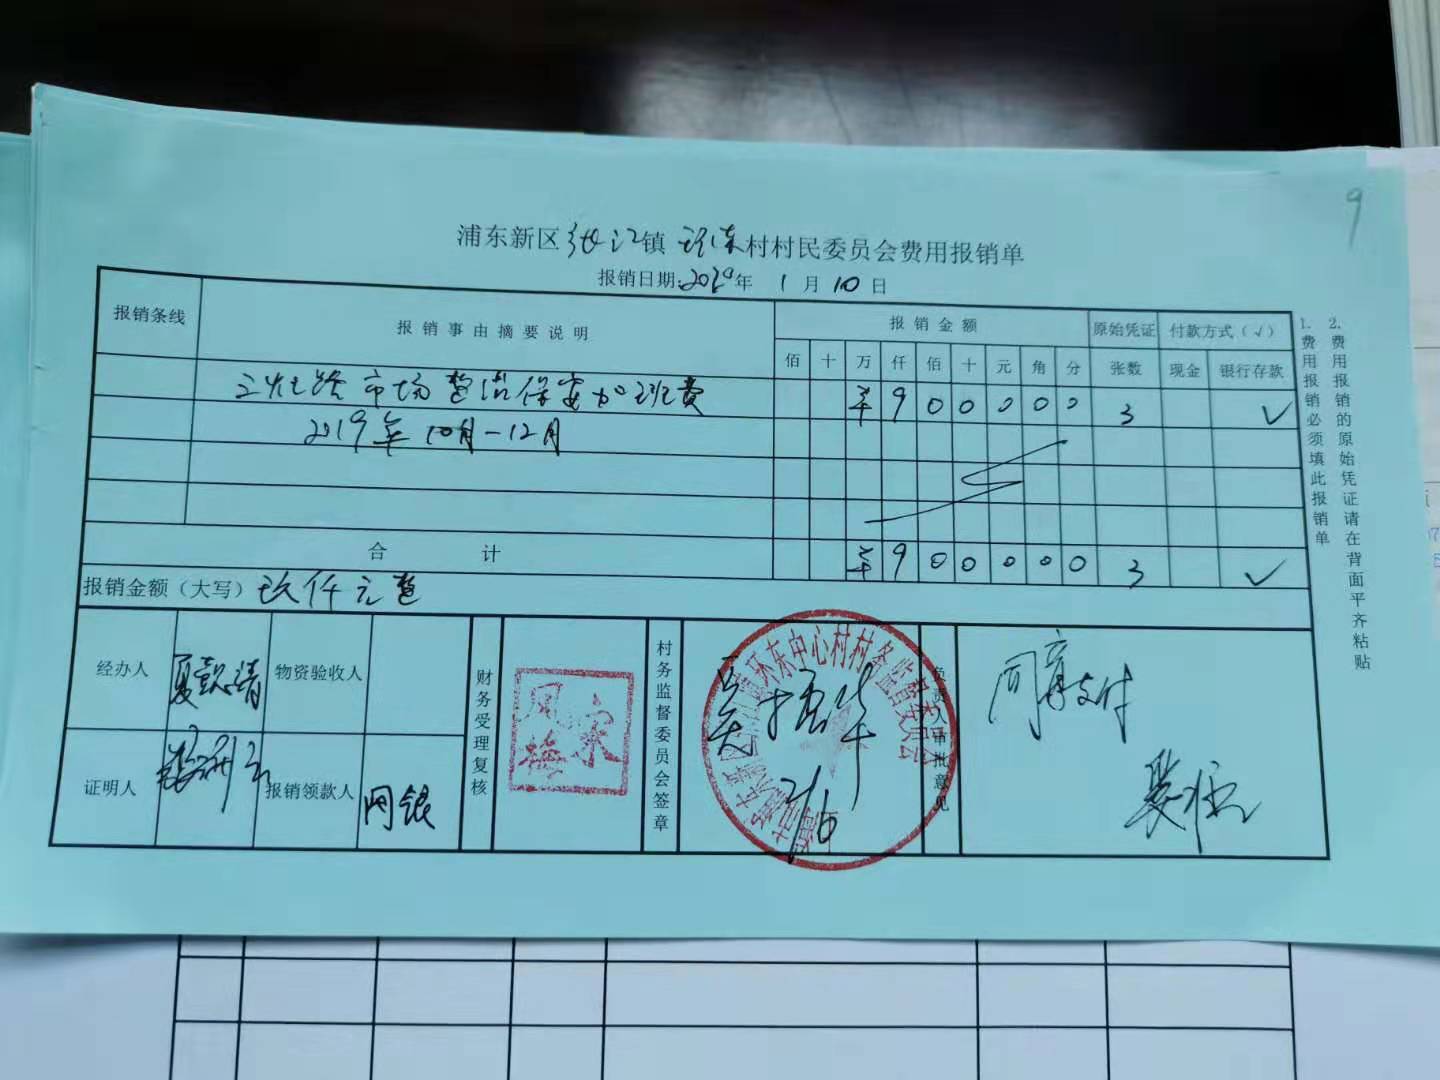 9
浦东新区张江镇环东村村民委员会费用报销单
报销日期:2020年 1月10日
报销条线 报销事由摘要说明 报销金额 原始凭证 付款方式(√)
佰 十 万 仟 佰 十 元 角 分 张数 现金 银行存款
市场整治保安加班费 ¥ 9 0 0 0 0 0 3 √
2019年10月-12月
合计 ¥ 9 0 0 0 0 0 3 √
报销金额(大写) 玖仟元整
经办人 夏懿清 物资验收人
证明人 报销领款人 网银
财务受理复核
宋凤梅
村务监督委员会签章
环东中心村村务监督委员会
吴振华
负责人审批意见
同意支付
1.费用报销必须填此报销单
2.费用报销的原始凭证请在背面平齐粘贴